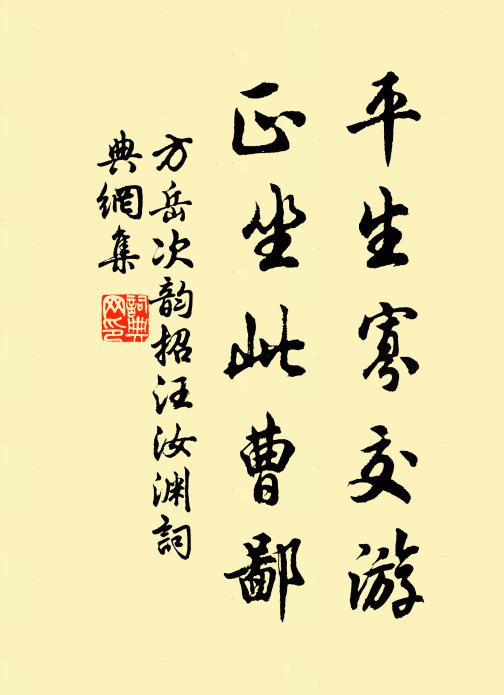 平生寡交游
正坐此曹鄙
方岳次韵招汪汝渊詞
典網集
詞典網印